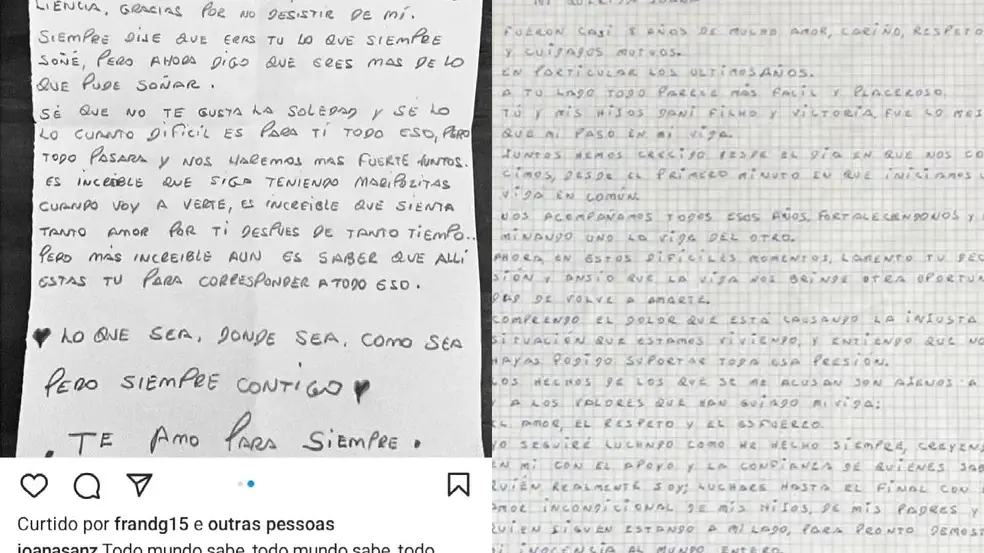 LIENCIA, GRACIAS POR NO DESISTIR DE MÍ.
SIEMPRE DIJE QUE ERAS TU LO QUE SIEMPRE
SOÑÉ, PERO AHORA DIGO QUE ERES MAS DE LO
QUE PUDE SOÑAR.
SÉ QUE NO TE GUSTA LA SOLEDAD Y SÉ LO
LO CUANTO DIFÍCIL ES PARA TÍ TODO ESO, PERO
TODO PASARA Y NOS HAREMOS MAS FUERTE JUNTOS.
ES INCREIBLE QUE SIGA TENIENDO MARIPOZITAS
CUANDO VOY A VERTE, ES INCREIBLE QUE SIENTA
TANTO AMOR POR TI DESPUES DE TANTO TIEMPO..
PERO MÁS INCREIBLE AUN ES SABER QUE ALLÍ
ESTAS TU PARA CORRESPONDER A TODO ESO.
♥ LO QUE SEA, DONDE SEA, COMO SEA
PERO SIEMPRE CONTIGO ♥
. TE AMO PARA SIEMPRE .
Curtido por frandg15 e outras pessoas
joanasanz Todo mundo sabe, todo mundo sabe, todo
FUERON CASI 8 AÑOS DE MUCHO AMOR, CARIÑO, RESPETO
Y CUIDADOS MUTUOS.
EN PARTICULAR LOS ULTIMOS AÑOS.
A TU LADO TODO PARECE MÁS FACIL Y PLACEROSO.
TÚ Y MIS HIJOS DANI FILHO Y VICTORIA, FUE LO MEJ
QUE MI PASO EN MI VIDA.
JUNTOS HEMOS CRECIDO DESDE EL DÍA EN QUE NOS CO
CIMOS, DESDE EL PRIMERO MINUTO EN QUE INICIAMOS L
VIDA EN COMÚN.
NOS ACOMPAÑAMOS TODOS ESOS AÑOS, FORTALECENDONOS Y
MINANDO UNO LA VIDA DEL OTRO.
AHORA EN ESTOS DIFÍCILES MOMENTOS, LAMENTO TU DEC
SIÓN Y ANSIO QUE LA VIDA NOS BRINDE OTRA OPORTUN
DAD DE VOLVE A AMARTE.
COMPRENDO EL DOLOR QUE ESTA CAUSANDO LA INJUSTA
SITUACIÓN QUE ESTAMOS VIVIENDO, Y ENTIENDO QUE NO
HAYAS PODIDO SUPORTAR TODA ESA PRESIÓN.
LOS HECHOS DE LOS QUE SE ME ACUSAN SON AJENOS A
Y A LOS VALORES QUE HAN GUIADO MI VIDA;
EL AMOR, EL RESPETO Y EL ESFUERZO.
YO SEGUIRÉ LUCHANDO COMO HE HECHO SIEMPRE, CREYEN
EN MI CON EL APOYO Y LA CONFIANZA DE QUIENES SAB
QUIÉN REALMENTE SOY; LUCHARE HASTA EL FINAL CON
AMOR INCONDICIONAL DE MIS HIJOS, DE MIS PADRES Y
QUIEN SIGUEN ESTANDO A MI LADO, PARA PRONTO DEMOST
MI INOCENCIA AL MUNDO ENTERO.